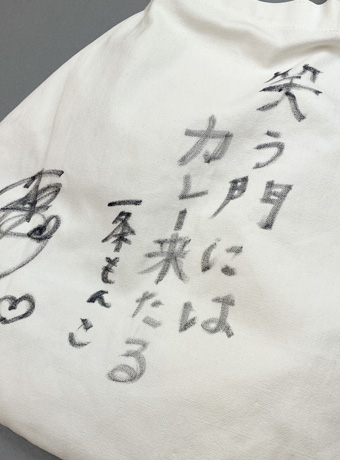 笑う門には
カレー来たる
一条もんこ